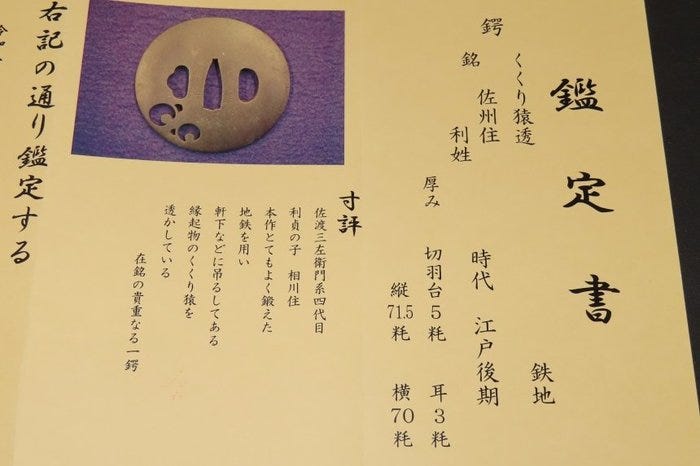 鑑定書
鍔
くくり猿透
鉄地
銘
佐州住
利姓
時代 江戸後期
厚み
切羽台5粍
耳3粍
縦71.5粍
横70粍
寸評
佐渡三左衛門系四代目
利貞の子 相川住
本作とてもよく鍛えた
地鉄を用い
軒下などに吊るしてある
縁起物のくくり猿を
透かしている
在銘の貴重なる一鍔
右記の通り鑑定する